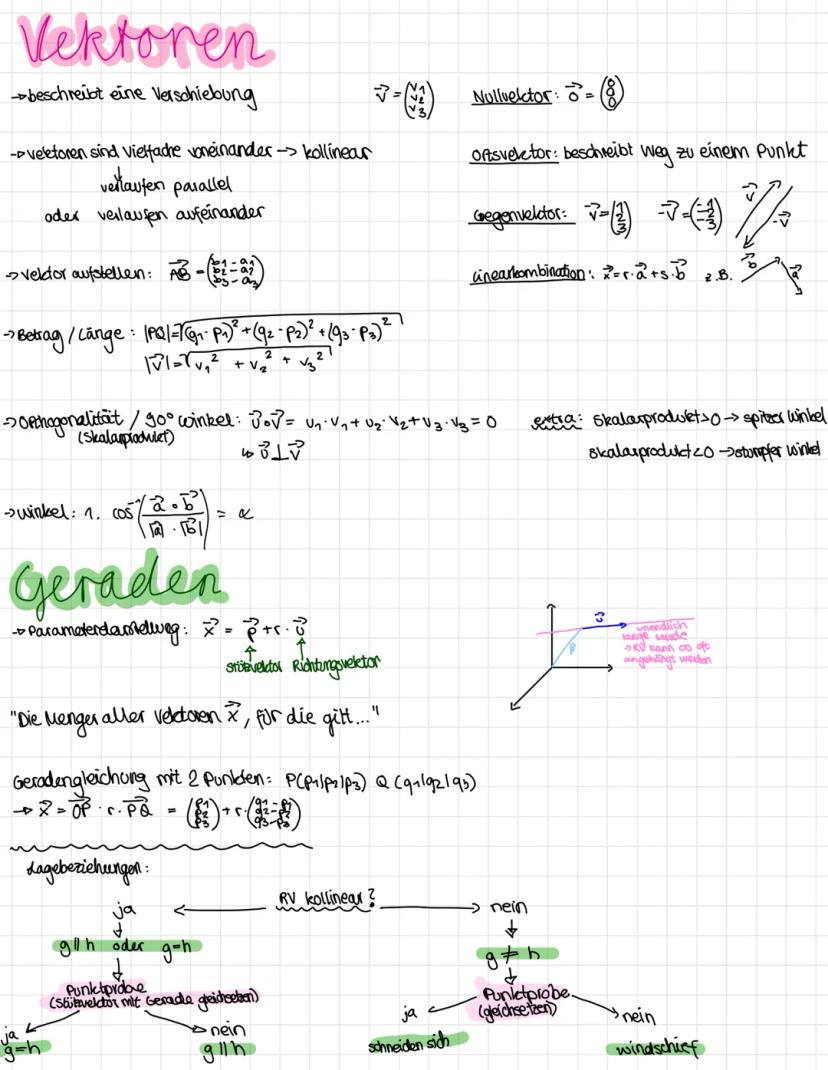 Vektoren
→ beschreibt eine Verschiebung
v⃗ = (v1 v2 v3)
Nullvektor: o⃗ = (0 0 0)
→ Vektoren sind Vielfache voneinander → kollinear
↓
verlaufen parallel
oder verlaufen aufeinander
Ortsvektor: beschreibt Weg zu einem Punkt
Gegenvektor: v⃗ = (1 2 3) -v⃗ = (-1 -2 -3) v⃗ -v⃗
→ Vektor aufstellen: AB⃗ = (b1-a1 b2-a2 b3-a3)
Linearkombination: x⃗ = r·a⃗ + s·b⃗ z.B. b⃗ a⃗
→ Betrag / Länge: |PQ| = √(q1-p1)² + (q2-p2)² + (q3-p3)²
|v⃗| = √v1² + v2² + v3²
→ Orthogonalität / 90° Winkel: u⃗ ∘ v⃗ = u1·v1 + u2·v2 + u3·v3 = 0
(Skalarprodukt)
↳ u⃗ ⊥ v⃗
extra: Skalarprodukt > 0 → spitzer Winkel
Skalarprodukt < 0 → stumpfer Winkel
→ Winkel: 1. cos⁻¹(a⃗ ∘ b⃗ / |a⃗| · |b⃗|) = α
Geraden
→ Parameterdarstellung: x⃗ = p⃗ + r · u⃗
Stützvektor Richtungsvektor
u⃗
p⃗
unendlich
lange Gerade
→ RV kann ∞ oft
angehängt werden
"Die Menge aller Vektoren x⃗, für die gilt..."
Geradengleichung mit 2 Punkten: P(p1|p2|p3) Q(q1|q2|q3)
→ x⃗ = OP⃗ · r · PQ⃗ = (p1 p2 p3) + r · (q1-p1 q2-p2 q3-p3)
Lagebeziehungen:
RV kollinear?
ja
nein
g || h oder g = h
g ≠ h
Punktprobe
(Stützvektor mit Gerade gleichsetzen)
Punktprobe
(gleichsetzen)
ja
g = h
nein
g || h
ja
schneiden sich
nein
windschief